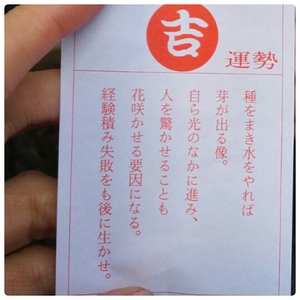 吉
運勢
種をまき水をやれば
芽が出る像。
自ら光のなかに進み、
人を驚かせることも
花咲かせる要因になる。
経験積み失敗をも後に生かせ。